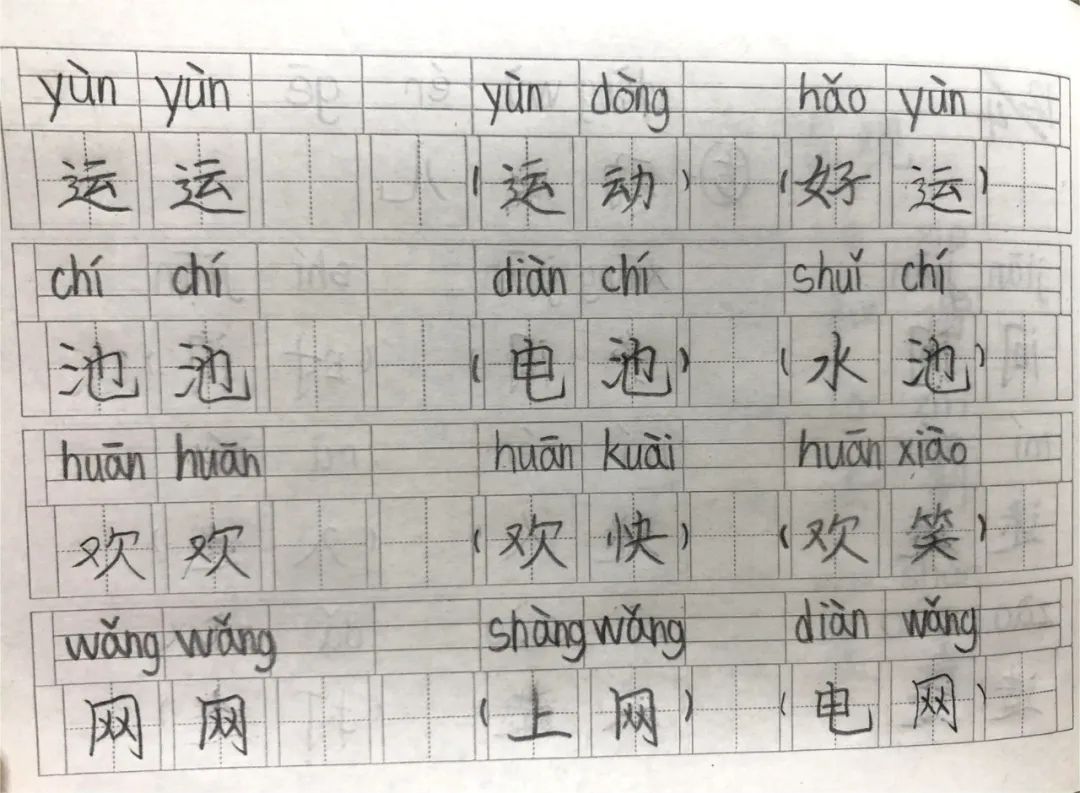 yùn yùn yùn dòng hǎo yùn
运 运 (运 动) (好 运)
chí chí diàn chí shuǐ chí
池 池 (电 池) (水 池)
huān huān huān kuài huān xiào
欢 欢 (欢 快) (欢 笑)
wǎng wǎng shàng wǎng diàn wǎng
网 网 (上 网) (电 网)